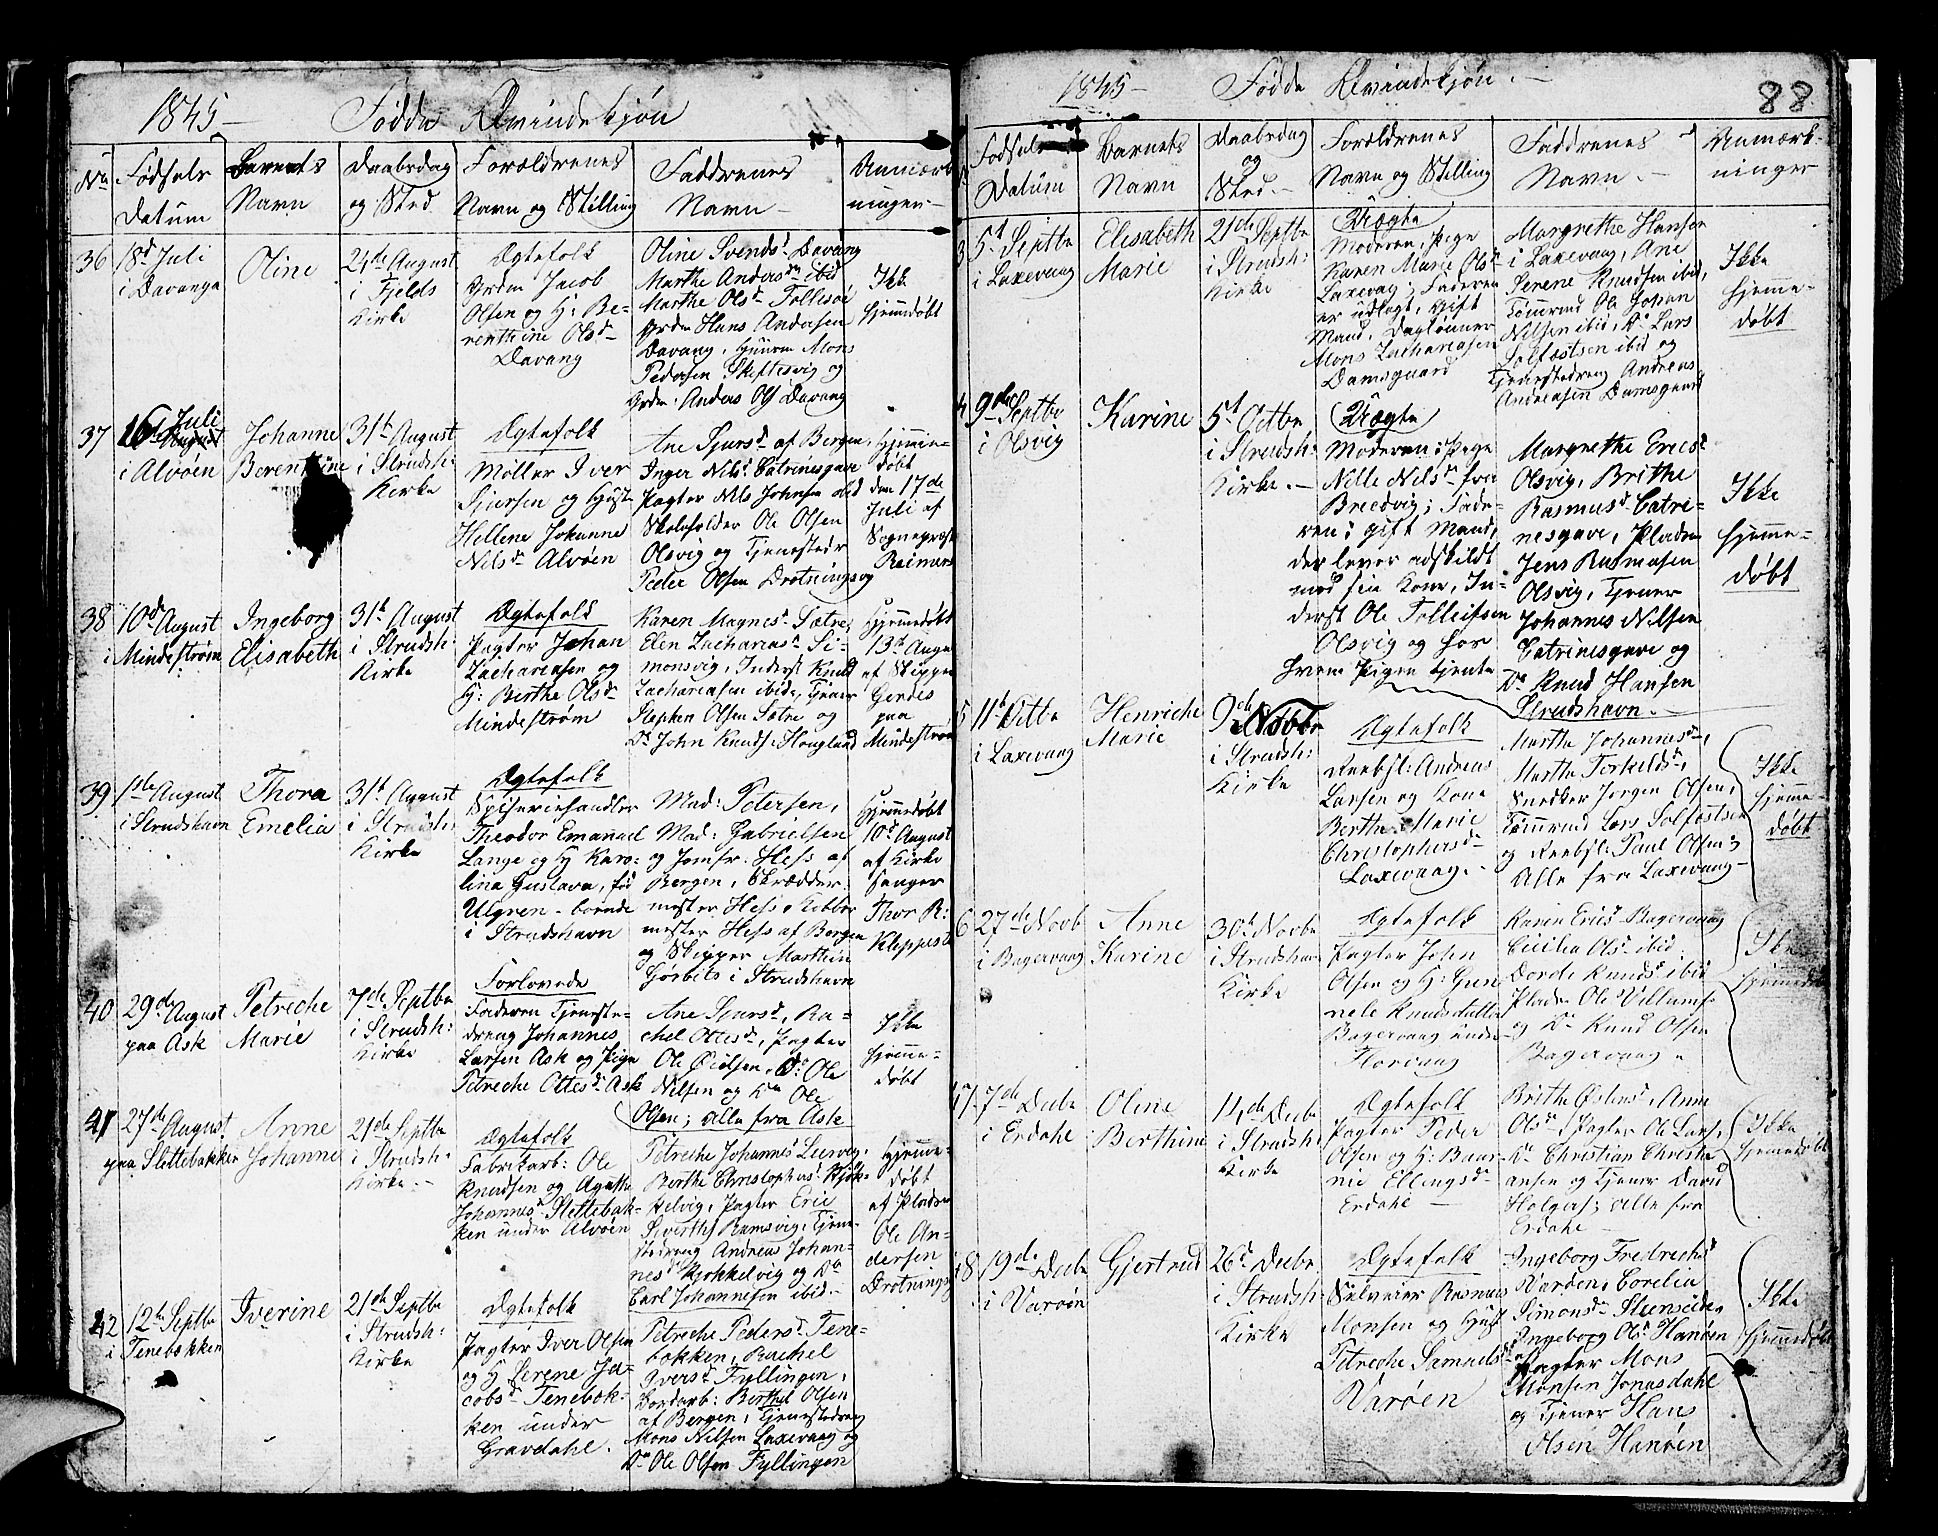 1845 — Fødde Qvindekjøn
No
Fødsels
Datum
Barnets
Navn
Daabsdag
og Sted
Forældrenes
Navn og Stilling
Faddrenes
Navn —
Anmærk
ninger —
36
18d Juli
i Davanger
Oline
24de August
i Fjelds
Kirke
Ægtefolk
Grdm Jacob
Olsen og H: Be-
renthine Olsd
Davang
Oline Svendsd Davang
Marthe Andersdr ibid
Marthe Olsd Tollesøe
Grdm Hans Andersen
Davang, Huusm Mons
Pedersen Skiftesvig og
Grdm: Anders Ols Davang
Ikke
hjemmedøbt
37
16d Juli
i Alvøen
Johanne
Berenthine
31t August
i Strudsh:
Kirke
Ægtefolk
Møller Iver
Sjursen og Hust
Hellene Johanne
Nilsd Alvøen
Ane Sjursd af Bergen,
Inger Nilsd Catrinesgave
Pagter Nils Johnsen ibid
Skoleholder Ole Olsen
Olsvig og Tjenestedr
Peder Olsen Drotningsvg
Hjemme-
døbt
den 17de
Juli af
Sognepræst
Reimers
38
10d August
i Mindestrøm
Ingeborg
Elisabeth
31t August
i Strudsh:
Kirke
Ægtefolk
Pagter Johan
Zachariasen og
H: Berthe Olsd
Mindestrøm
Karen Magnesd Sætre,
Elen Zachariasd Si-
monsvig, Inderst Knud
Zachariasen ibid, Tjener
Stephen Olsen Sætre og
Do John Knuds: Hougland
Hjemmedøbt
13d Augu
af Skipper
Gerdes
paa
Mindestrøm
39
1ste August
i Strudshavn
Thora
Emelia
31t August
i Strudsh:
Kirke
Ægtefolk
Spiseriehandler
Theodor Emanuel
Lange og H Karo-
lina Gustava, fød
Ulgren - boende
i Strudshavn
Mad: Petersen,
Mad: Gabrielsen
og Jomfr: Hess af
Bergen, Skrædder
mester Hess
mester Hess af Bergen
og Skipper Marthin
Gjørbits i Strudshavn
Hjemmedøbt
10d August
af Kirke
sanger
Thor R:
Kleppestø
40
29de August
paa Ask
Petreche
Marie
7de Septbr
i Strudsh:
Kirke
Forlovede
Faderen Tjeneste-
dreng Johannes
Larsen Ask og Pige
Petreche Ottesd Ask
Ane Sjursd, Ra-
chel Ottesd, Pagter
Ole Eidsen, Do Ole
Nilsen og Do Ole
Olsen; alle fra Ask
Ikke
hjemme-
døbt
41
27de August
paa Slettebakken
Anne
Johanne
21de Septbr
i Strudsh:
Kirke —
Ægtefolk
Fabrikarb: Ole
Knudsen og Agathe
Johannesd Slettebak-
ken under Alvøen
Petreche Johannesd Liervig,
Berthe Christophersd Kjøk-
kelvig, Pagter Eric
Siverths Ramsvig, Tjene-
stedreng Andreas Johan-
nes Kjøkkelvig og Do
Carl Johannesen ibid —
Hjemme-
døbt
af Pladsm
Ole An-
dersen
Drotningsvg
42
12te Septbr
i Tenebakken
Iverine
21de Septbr
i Strudsh:
Kirke
Ægtefolk
Pagter Iver Olsen
og H Serene Ja-
cobsd Tenebak-
ken under
Gravdahl.
Petreche Pedersd Tene-
bakken, Rachel
Iversd Fyllingen,
Bordarb: Berthel Olsen
af Bergen, Tjenestedreng
Mons Nilsen Laxevaag og
Do Ole Olsen Fyllingen
1845 — Fødde Qvindekjøn. —
88
Fødsels
Datum
Barnets
Navn
Daabsdag
og
Sted —
Forældrenes
Navn og Stilling
Faddrenes
Navn. —
Anmærk-
ninger
3
5t Septbr
i Laxevaag
Elisabeth
Marie
21de Septbr
i Strudsh:
Kirke
Uægte
Moderen: Pige
Karen Marie Olsd
Laxevag; Faderen
er udlagt, Gift
Mand, Daglønner
Mons Zachariasen
Damsgaard
Margrethe Hansen
i Laxevaag, Ane
Serene Knudsen ibid,
Tømrmd Ole Johan
Nilsen ibid, Do Lars
Solfestsen ibid og
Tjenestedreng Andreas
Andreasen Damsgaard
Ikke
hjemme-
døbt
4
9de Septbr
i Olsvig
Karine
5t Octbr
i Strudsh:
Kirke. —
Uægte
Moderen: Pige
Nille Nilsd fra
Bredvig; Fade-
ren: gift Mand,
der lever adskildt
med sin Kone, In-
derst Ole Tolleifsen
Olsvig og hos
hvem Pigen tjente
Margrethe Ericsd
Olsvig, Brithe
Rasmusd Catri-
nesgave, Pladsm
Jens Rasmusen
Olsvig, Tjener
Johannes Nilsen
Catrinesgave og
Do Knud Hansen
Strudshavn. —
Ikke
hjemme-
døbt
5
11t Octbr
i Laxevaag
Henriche
Marie
9de Novbr
i Strudsh:
Kirke
Ægtefolk
Reebsl: Andreas
Larsen og Kone
Berthe Marie
Christophersd
Laxevaag. —
Marthe Johannesd,
Marthe Torkildsd,
Snedker Jørgen Olsen,
Tømrmd Lars Solfestsen
og Reebsl: Paul Olsen;
Alle fra Laxevaag —
Ikke
hjemme-
døbt
6
27de Novb
i Bagervaag
Anne
Karine
30t Novbr
i Strudshavn
Kirke
Ægtefolk
Pagter John
Olsen og H: Gun
nele Knudsdatter
Bagervaag under
Florvaag
Karen Ericsd Bagervaag
Cicilia Olsd ibid
Dorde Knudsd ibid
Pladsm Ole Villumsen
og Do Knud Olsen
Bagervaag
Ikke
hjemmedøbt
7
7de Decbr
i Erdahl
Oline
Berthine
14de Decbr
i Strudsh:
Kirke
Ægtefolk
Pagter Peder
Olsen og H: Baar-
nie Ellingsd
Erdahl —
Brithe Østensd, Anne
Olsd, Pagter Ole Larsen,
Do Christian Christi-
ansen og Tjener David
Holgers; alle fra
Erdahl —
Ikke
hjemmedøbt
8
19de Decbr
i Varøen
Gjertrud
26d Decbr
i Strudsh:
Kirke
Ægtefolk
Selveier Rasmus
Monsen og Hust
Petreche Samuelsd
Varøen
Ingeborg Fredrechsd
Varden, Corelia
Simonsd Steensede,
Ingeborg Olsd Hanøen
Pagter Mons
Monsen Jonasdahl
og Tjener Hans
Olsen Hanøen
Ikke
hjemmedøbt